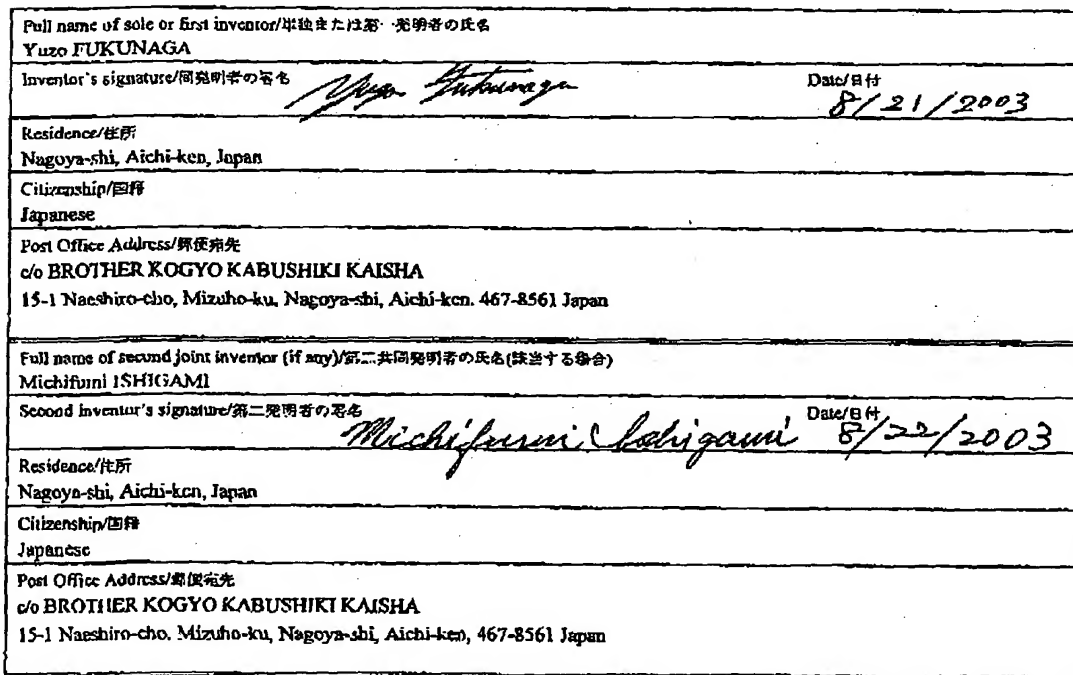 Full name of sole or first inventor/単独または第一発明者の氏名
Yuzo FUKUNAGA
Inventor's signature/同発明者の署名 Yuzo Fukunaga Date/日付
8/21/2003
Residence/住所
Nagoya-shi, Aichi-ken, Japan
Citizenship/国籍
Japanese
Post Office Address/郵便宛先
c/o BROTHER KOGYO KABUSHIKI KAISHA
15-1 Naeshiro-cho, Mizuho-ku, Nagoya-shi, Aichi-ken. 467-8561 Japan
Full name of second joint inventor (if any)/第二共同発明者の氏名(該当する場合)
Michifumi ISHIGAMI
Second inventor's signature/第二発明者の署名 Date/日付
Michifumi Ishigami 8/22/2003
Residence/住所
Nagoya-shi, Aichi-ken, Japan
Citizenship/国籍
Japanese
Post Office Address/郵便宛先
c/o BROTHER KOGYO KABUSHIKI KAISHA
15-1 Naeshiro-cho. Mizuho-ku, Nagoya-shi, Aichi-ken, 467-8561 Japan